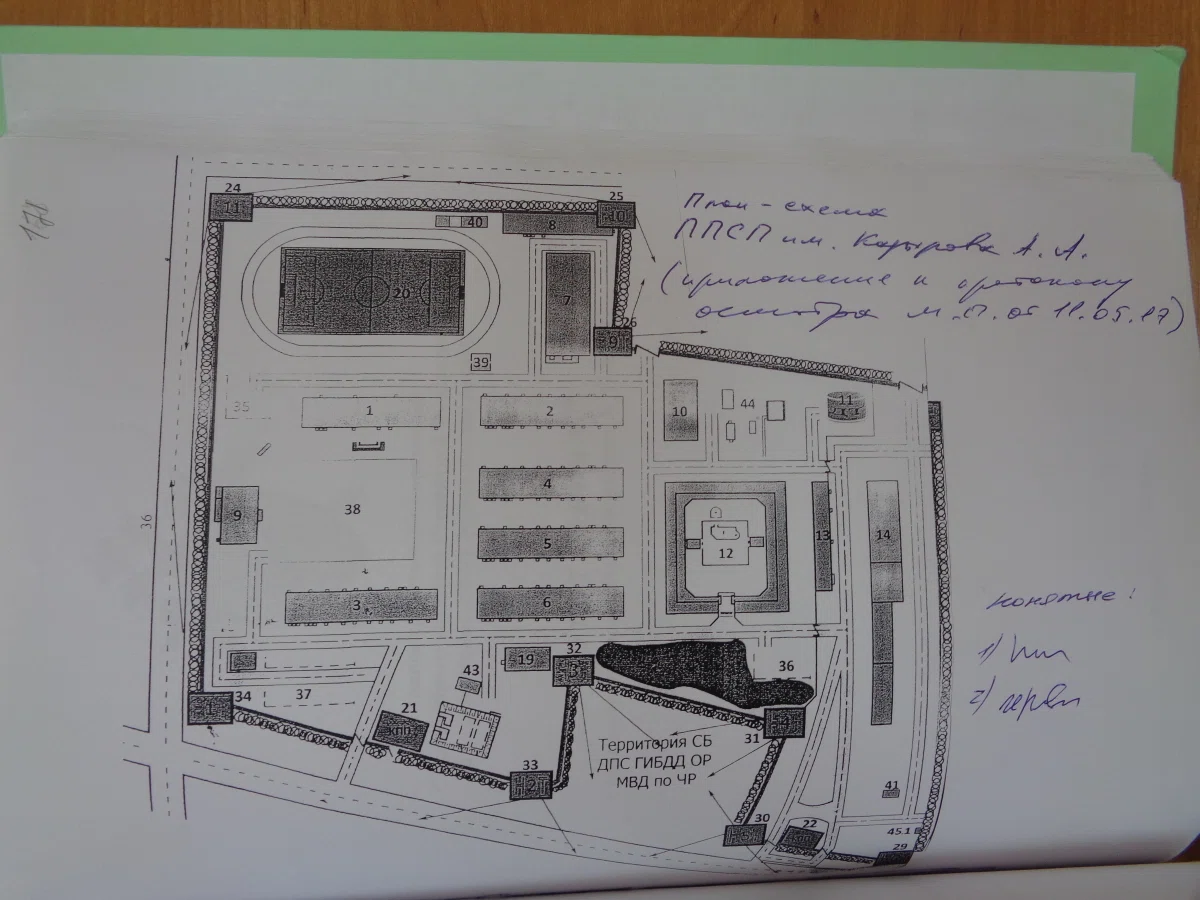 178
24
11
25
10
40
8
План - схема
ППСП им. Кадырова А. А.
(приложение к протоколу
осмотра м.п. от 11.05.17)
7
20
26
9
39
35
1
2
10
44
11
4
36
9
38
5
12
13
14
3
6
понятые:
1)
2)
32
19
3
36
43
34
37
1
21
КПП
4
31
Территория СБ
ДПС ГИБДД ОР
МВД по ЧР
33
2
41
30
22
5
45.1
29